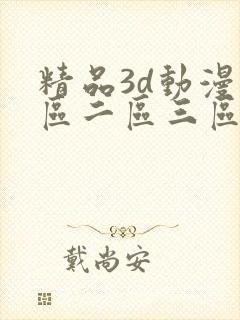 精品3d動漫
區二區三區
戴尚安